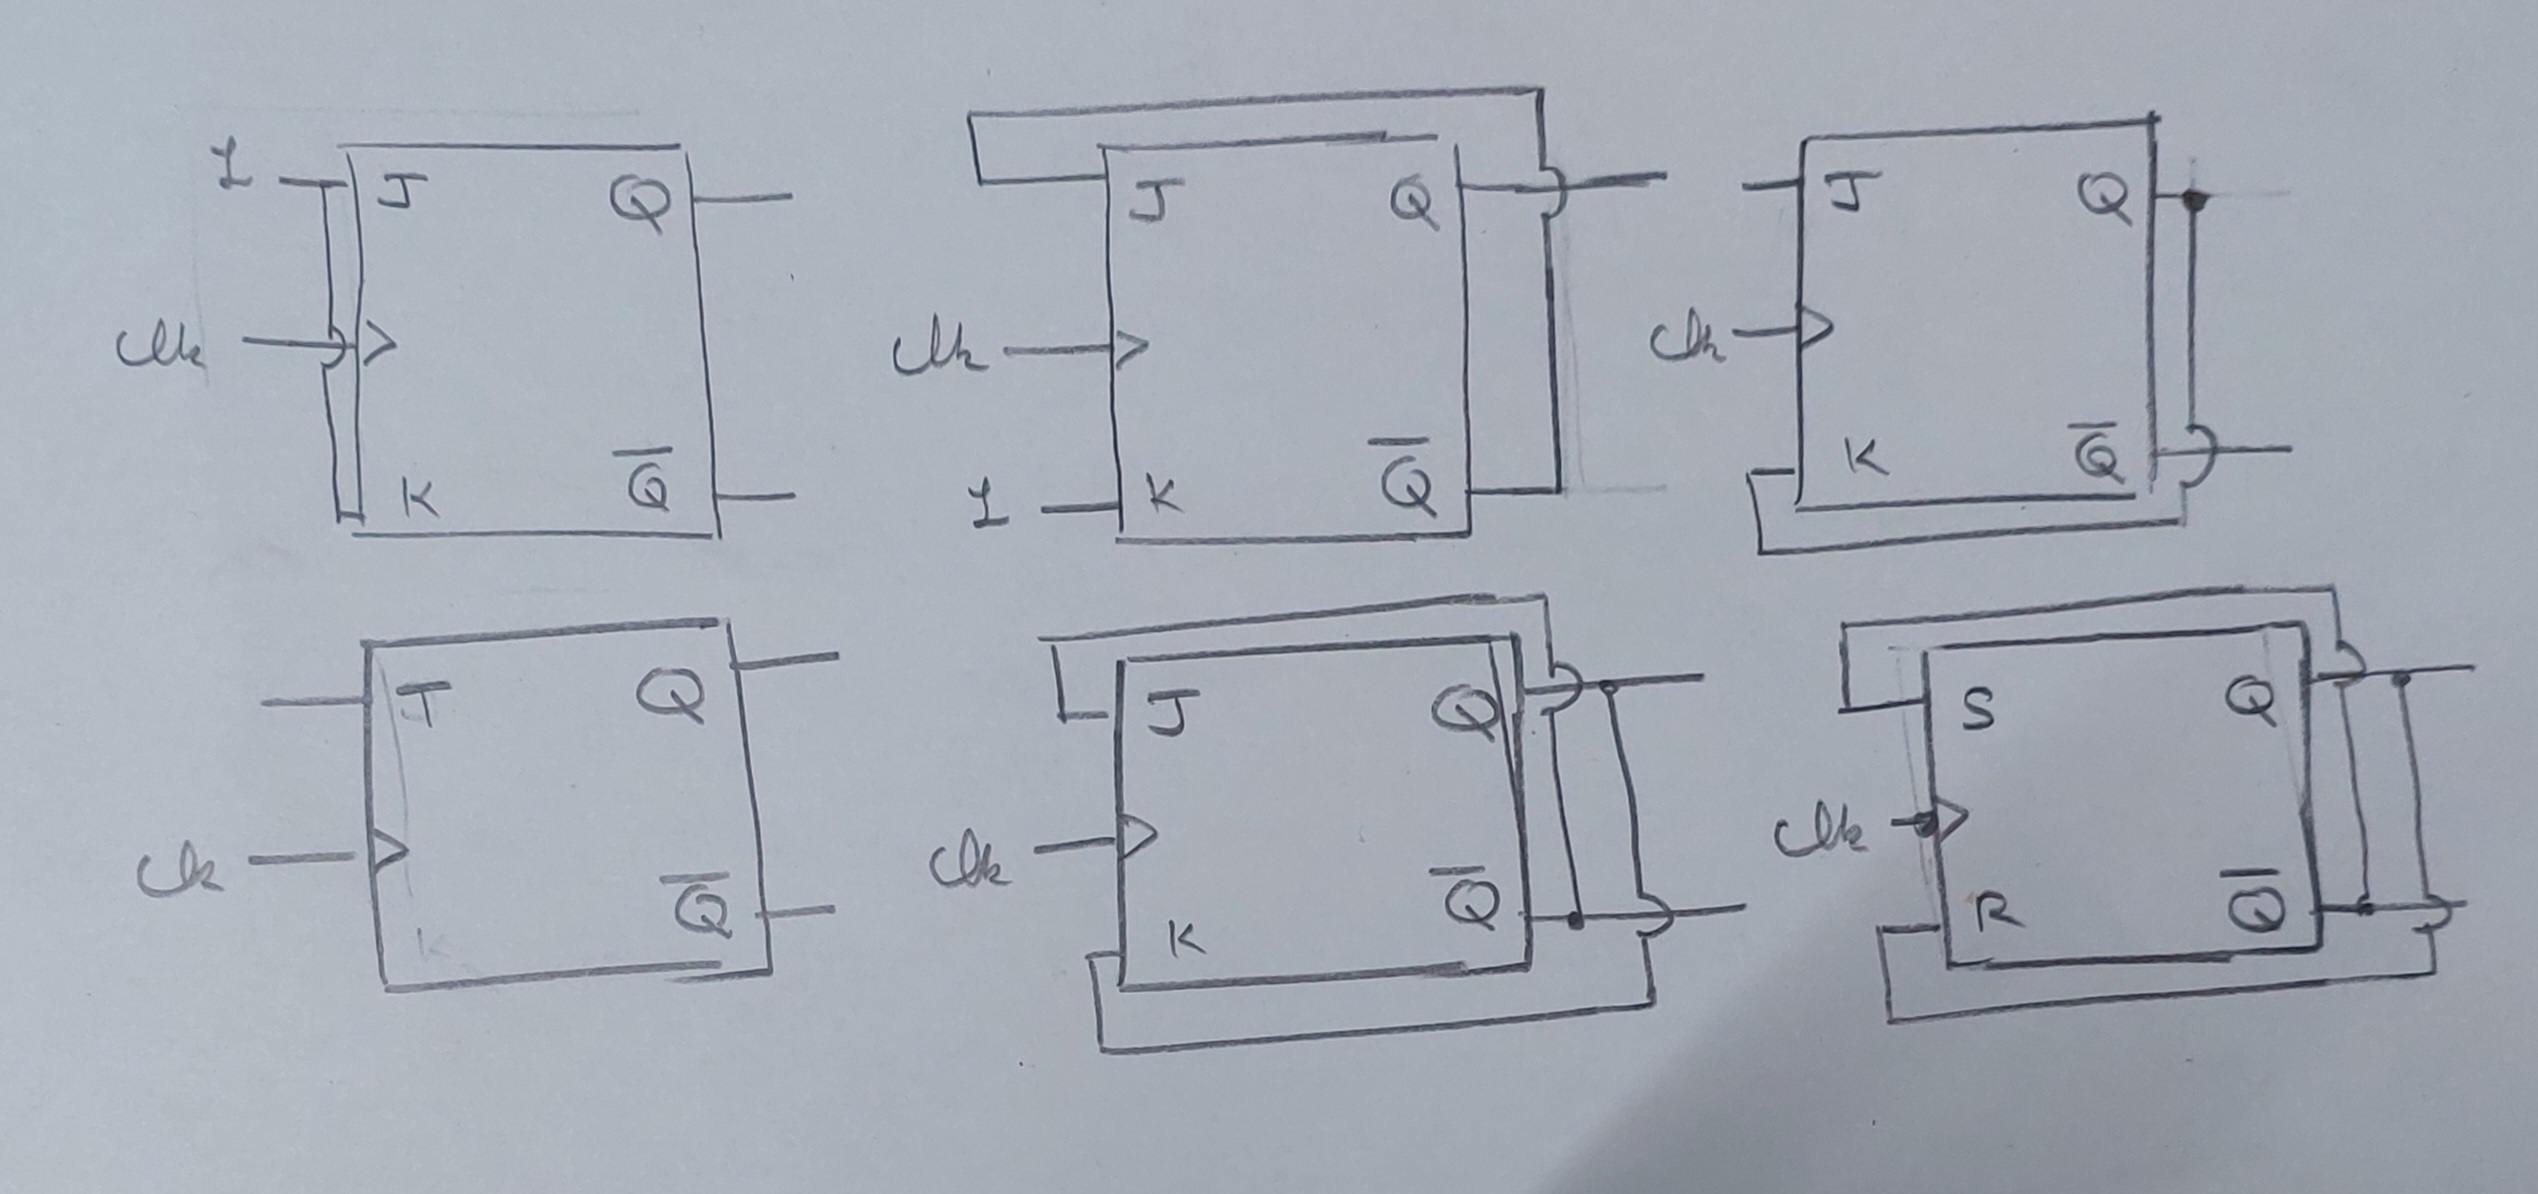 1 J Q
Clk
K Q̅
J Q
Clk
1 K Q̅
J Q
Clk
K Q̅
J Q
Clk
K Q̅
J Q
Clk
K Q̅
S Q
Clk
R Q̅